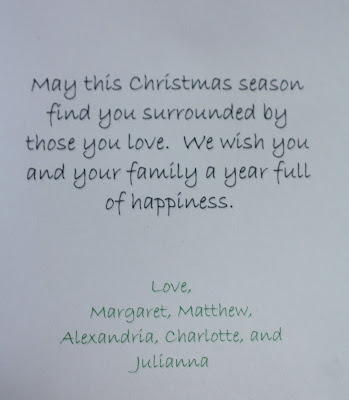 May this Christmas season
find you surrounded by
those you love. We wish you
and your family a year full
of happiness.
Love,
Margaret, Matthew,
Alexandria, Charlotte, and
Julianna